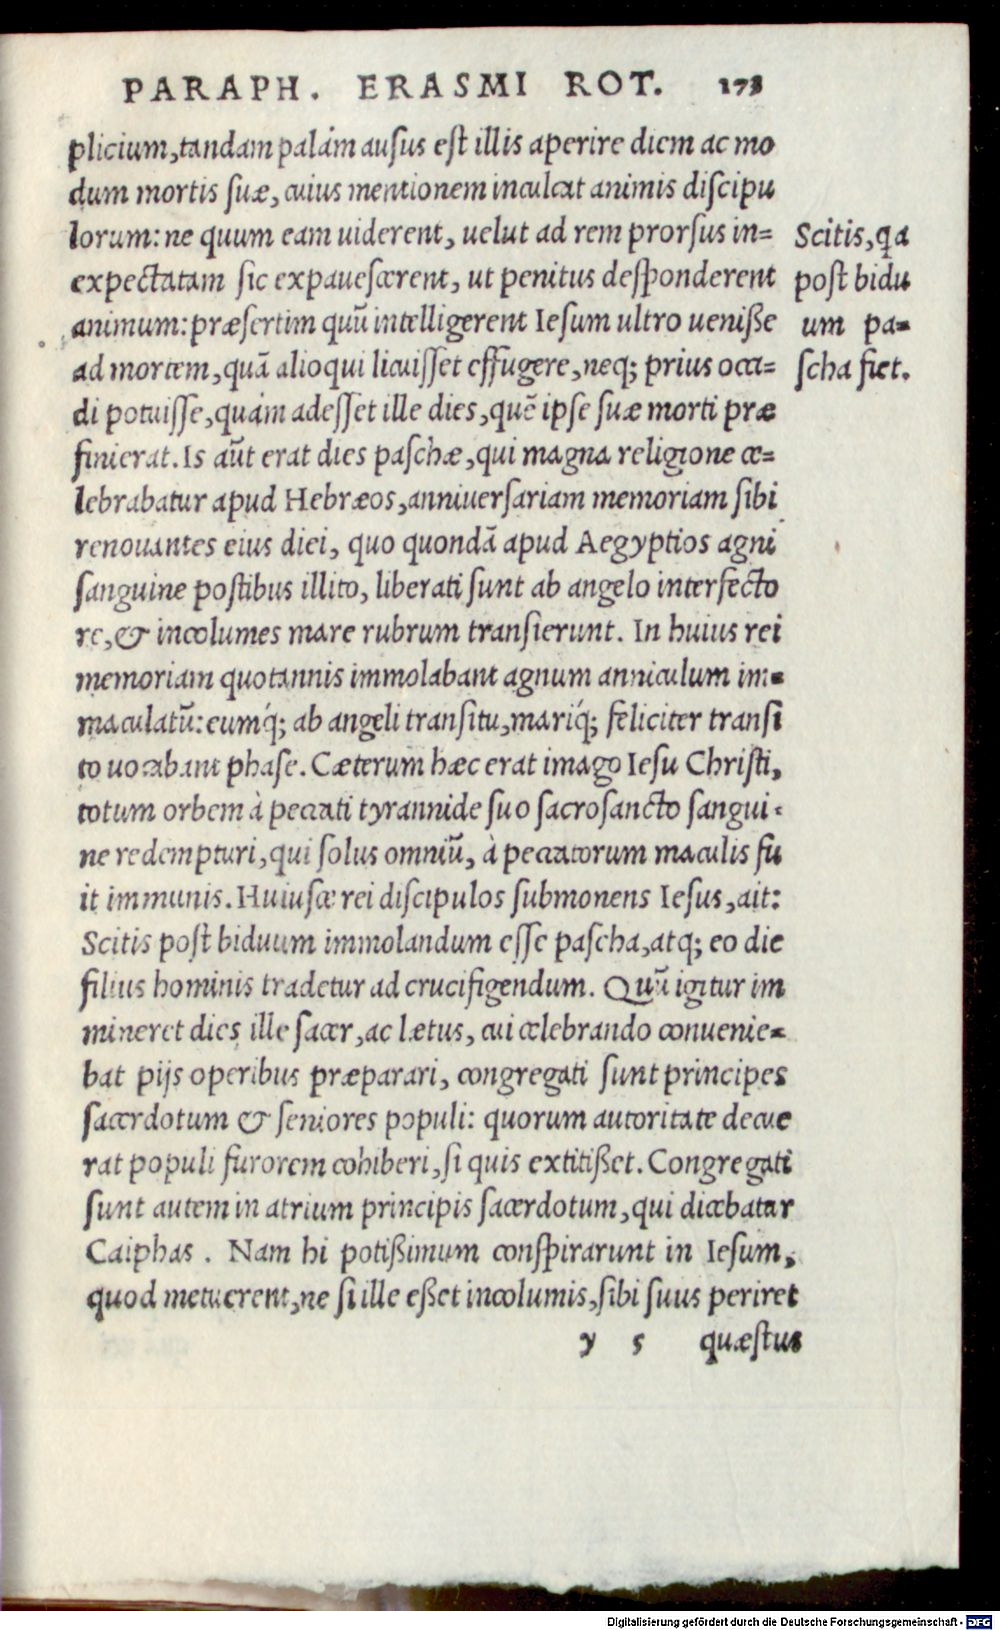 PARAPH. ERASMI ROT. 178
plicium,tandam palám ausus est illis aperire diem ac mo
dum mortis suæ, cuius mentionem inculcat animis discipu
lorum: ne quum eam uiderent, uelut ad rem prorsus in=
expectatam sic expauescerent, ut penitus desponderent
animum: præsertim quū intelligerent Iesum ultro uenisse
ad mortem,quā alioqui licuisset effugere,neq; prius occi=
di potuisse,quàm adesset ille dies,quē ipse suæ morti præ
finierat. Is aūt erat dies paschæ,qui magna religione ce=
lebrabatur apud Hebræos,anniuersariam memoriam sibi
renouantes eius diei, quo quondā apud Aegyptios agni
sanguine postibus illito, liberati sunt ab angelo interfecto
re,& incolumes mare rubrum transierunt. In huius rei
memoriam quotannis immolabant agnum anniculum im=
maculatū: eumq́; ab angeli transitu,mariq́; feliciter transi
to uocabant phase. Cæterum hæc erat imago Iesu Christi,
totum orbem à peccati tyrannide suo sacrosancto sangui=
ne redempturi,qui solus omniū, à peccatorum maculis fu
it immunis. Huiusce rei discipulos submonens Iesus,ait:
Scitis post biduum immolandum esse pascha,atq; eo die
filius hominis tradetur ad crucifigendum. Quū igitur im
mineret dies ille sacer,ac lætus, cui celebrando conuenie=
bat pijs operibus præparari, congregati sunt principes
sacerdotum & seniores populi: quorum autoritate decue
rat populi furorem cohiberi,si quis extitisset. Congregati
sunt autem in atrium principis sacerdotum,qui dicebatur
Caiphas. Nam hi potissimum conspirarunt in Iesum,
quod metuerent,ne si ille esset incolumis,sibi suus periret
y 5 quæstus
Scitis,qa
post bidu
um pa=
scha fiet.
Digitalisierung gefördert durch die Deutsche Forschungsgemeinschaft - DFG